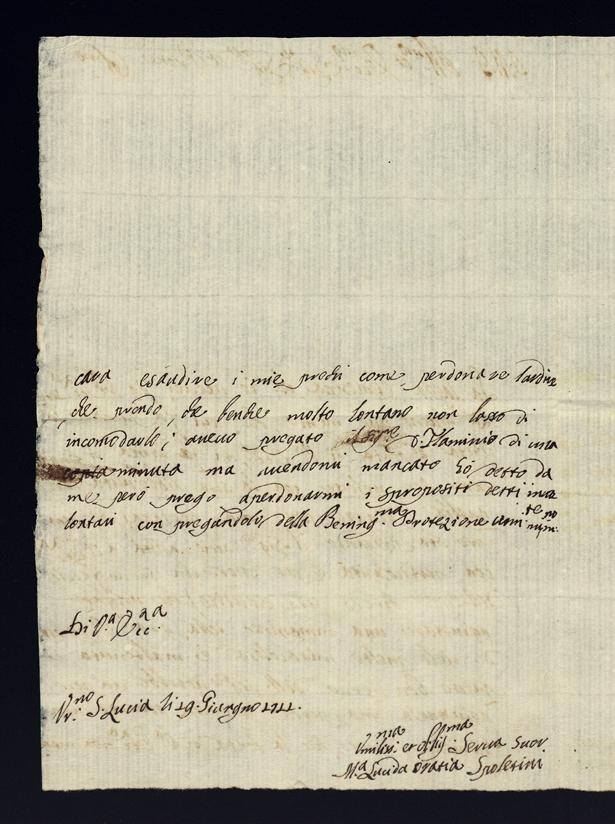 cara esaudire i mie prechi come perdonare lardire
che prendo, che benche molto lontano non lasso di
incomodarlo; avevo pregato il sigre D. Flaminio di una
copia minuta ma avendomi mancato hò detto da
me però prego aperdonarmi i spropositi detti invo
lontari con pregandolo della Benigma Protezione umite
Di V.a Ecc.a
S. Lucia li 19. Giungno 1711.
Umiliss.ma et Serva Suor
M.a Lucida Oratia Spoletini